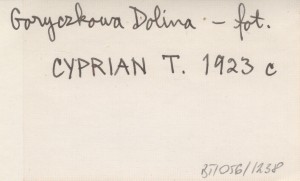 Goryczkowa Dolina - fot.
CYPRIAN T. 1923 c
BJ1056/1238